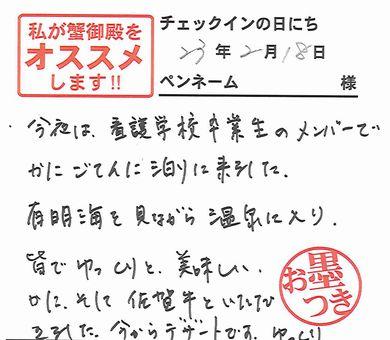 私が蟹御殿を
オススメ
します!!
チェックインの日にち
23年2月18日
ペンネーム 様
・今夜は、看護学校卒業生のメンバーで
かにごてんに泊りに来ました。
有明海を見ながら温泉に入り、
皆でゆっくりと、美味しい、
かに、そして佐賀牛をいただ
きました。今からデザートです。ゆっくり
お墨つき